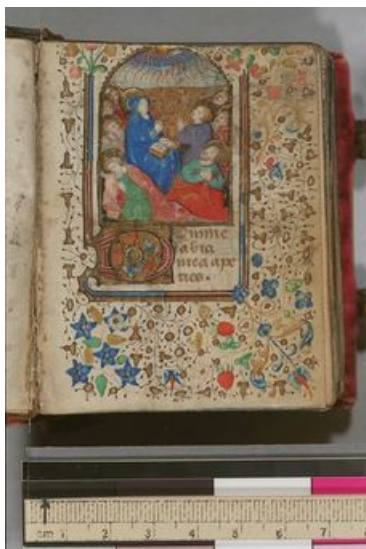 Domine
labia
mea ape
ries.
cm 1 2 3 4 5 6 7